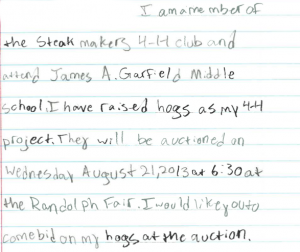 I am a member of
the Steak makers 4-H club and
attend James A. Garfield Middle
school. I have raised hogs as my 4-H
project. They will be auctioned on
Wednesday August 21, 2013 at 6:30 at
the Randolph Fair. I would like you to
come bid on my hogs at the auction.